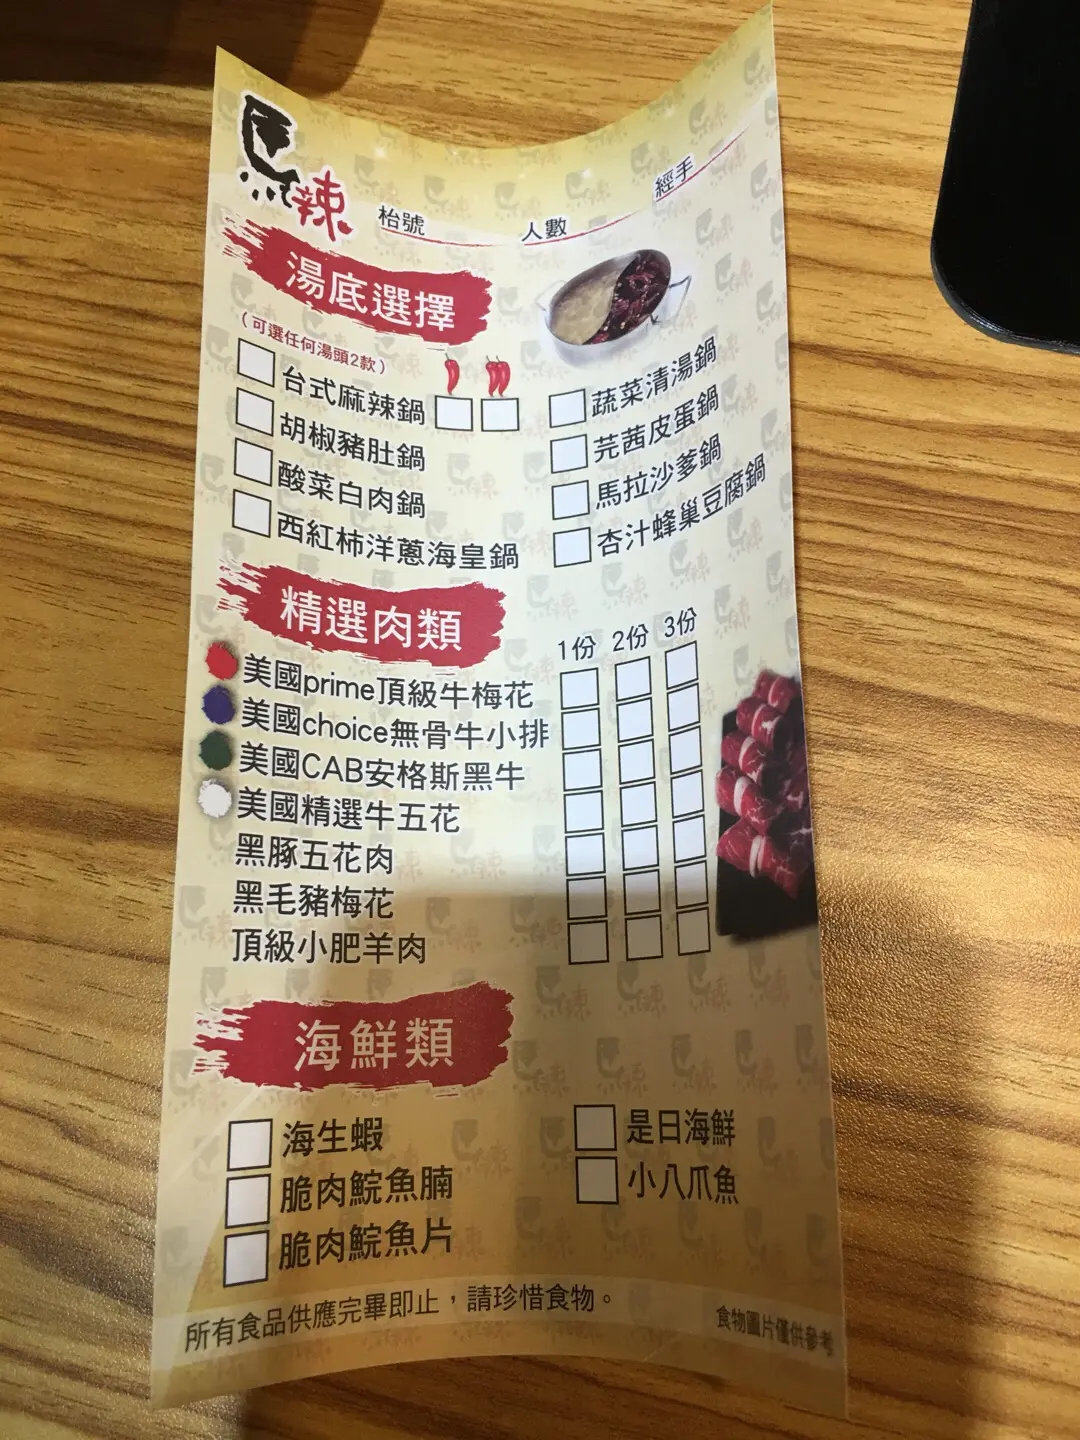 馬辣
枱號 人數 經手
湯底選擇
(可選任何湯頭2款)
台式麻辣鍋
胡椒豬肚鍋
酸菜白肉鍋
西紅柿洋蔥海皇鍋
蔬菜清湯鍋
芫茜皮蛋鍋
馬拉沙爹鍋
杏汁蜂巢豆腐鍋
精選肉類
1份 2份 3份
美國prime頂級牛梅花
美國choice無骨牛小排
美國CAB安格斯黑牛
美國精選牛五花
黑豚五花肉
黑毛豬梅花
頂級小肥羊肉
海鮮類
海生蝦
脆肉鯇魚腩
脆肉鯇魚片
是日海鮮
小八爪魚
所有食品供應完畢即止，請珍惜食物。
食物圖片僅供參考